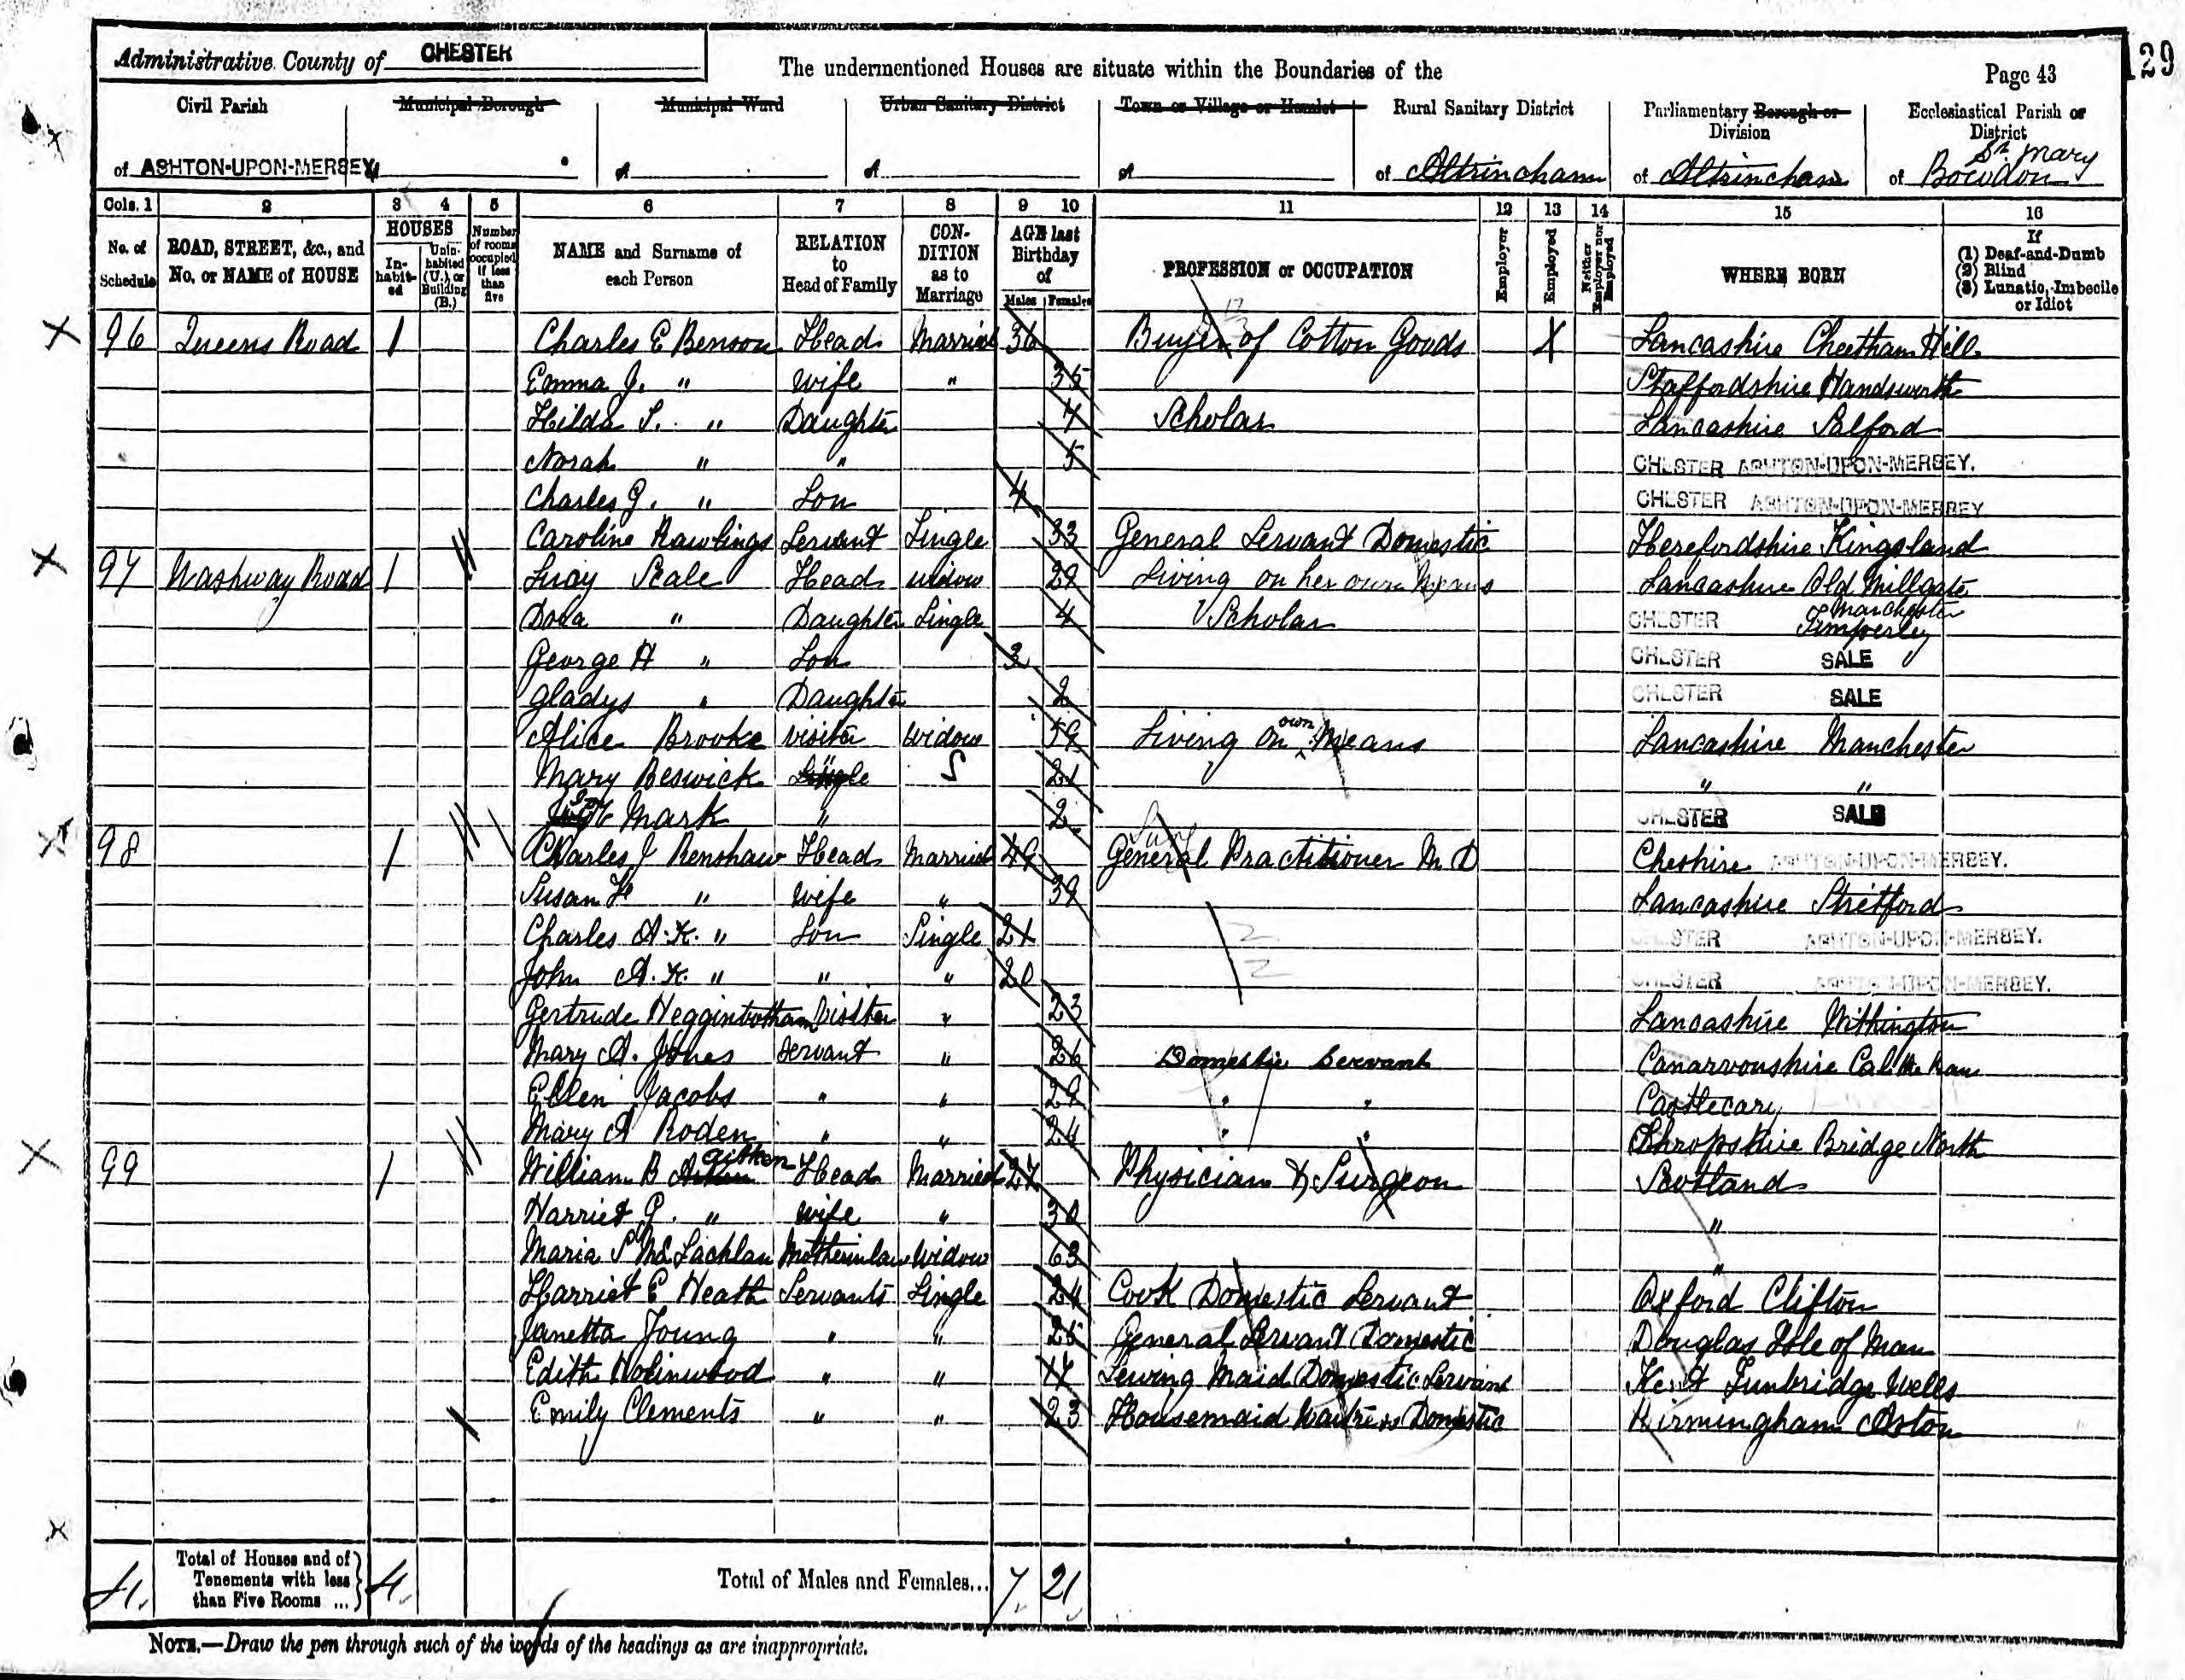 Administrative County of CHESTER
The undermentioned Houses are situate within the Boundaries of the
Page 43
129
Civil Parish
of ASHTON-UPON-MERSEY
Municipal Borough
Municipal Ward
of
Urban Sanitary District
of
Town or Village or Hamlet
of
Rural Sanitary District
of Altrincham
Parliamentary Borough or Division
of Altrincham
Ecclesiastical Parish or District
of St Mary Bowdon
Cols. 1 2 3 4 5 6 7 8 9 10 11 12 13 14 15 16
No. of Schedule
ROAD, STREET, &c., and No. or NAME of HOUSE
HOUSES
In-habit-ed
Unin-habited (U.), or Building (B.)
Number of rooms occupied if less than five
NAME and Surname of each Person
RELATION to Head of Family
CON-DITION as to Marriage
AGE last Birthday of
Males Females
PROFESSION or OCCUPATION
Employer
Employed
Neither Employer nor Employed
WHERE BORN
If
(1) Deaf-and-Dumb
(2) Blind
(3) Lunatic, Imbecile or Idiot
96 Queens Road 1 Charles E Benson Head Married 36 Buyer of Cotton Goods X Lancashire Cheetham Hill
Emma J. " Wife " 35 Staffordshire Handsworth
Hilda S. " Daughter 7 Scholar Lancashire Salford
Norah " " 5 CHESTER ASHTON-UPON-MERSEY.
Charles G. " Son 4 CHESTER ASHTON-UPON-MERSEY
Caroline Rawlings Servant Single 33 General Servant Domestic Herefordshire Kingsland
97 Washway Road 1 Lucy Seale Head Widow 29 Living on her own Means Lancashire Old Millgate Manchester
Dora " Daughter Single 4 Scholar CHESTER Timperley
George H " Son 3 CHESTER SALE
Gladys " Daughter 2 CHESTER SALE
Alice Brooke Visitor Widow 59 Living on own Means Lancashire Manchester
Mary Beswick " S 21 " "
Mark " 2 CHESTER SALE
98 1 Charles J Renshaw Head Married 49 General Practitioner M D Cheshire ASHTON-UPON-MERSEY.
Susan H " Wife " 39 Lancashire Stretford
Charles A. K. " Son Single 21 CHESTER ASHTON-UPON-MERSEY.
John A. K. " " " 20 CHESTER ASHTON-UPON-MERSEY.
Gertrude Hegginbotham Visitor " 23 Lancashire Withington
Mary A. Jones Servant " 26 Domestic Servant Canarvonshire
Ellen Jacobs " " 29 " " Castlecary
Mary A Roden " " 24 " " Shropshire Bridge North
99 1 William B Aitken Head Married 27 Physician & Surgeon Scotland
Harriet P. " Wife " 30 "
Maria S McLachlan Mother in law Widow 63 "
Harriet E Heath Servants Single 24 Cook Domestic Servant Oxford Clifton
Janetta Young " " 25 General Servant Domestic Douglas Isle of Man
Edith Holinwood " " 17 Sewing Maid Domestic Servant Kent Tunbridge Wells
Emily Clements " " 23 Housemaid Waitress Domestic Birmingham Aston
4. Total of Houses and of Tenements with less than Five Rooms ... 4. Total of Males and Females... 7. 21
NOTE.—Draw the pen through such of the words of the headings as are inappropriate.